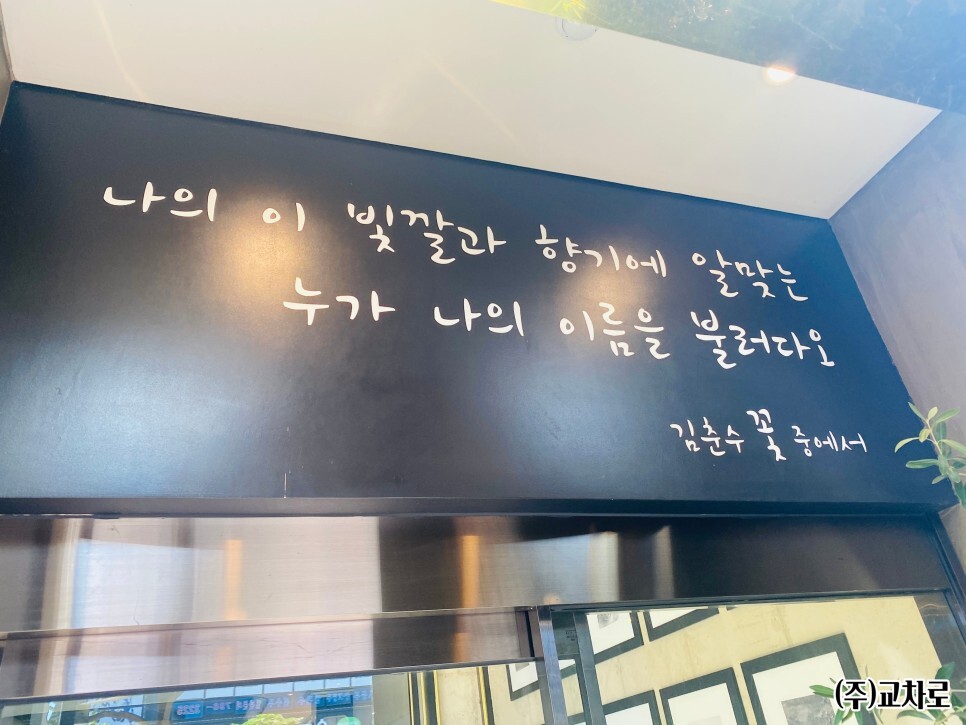 나의 이 빛깔과 향기에 알맞는
누가 나의 이름을 불러다오
김춘수 꽃 중에서
(주)교차로